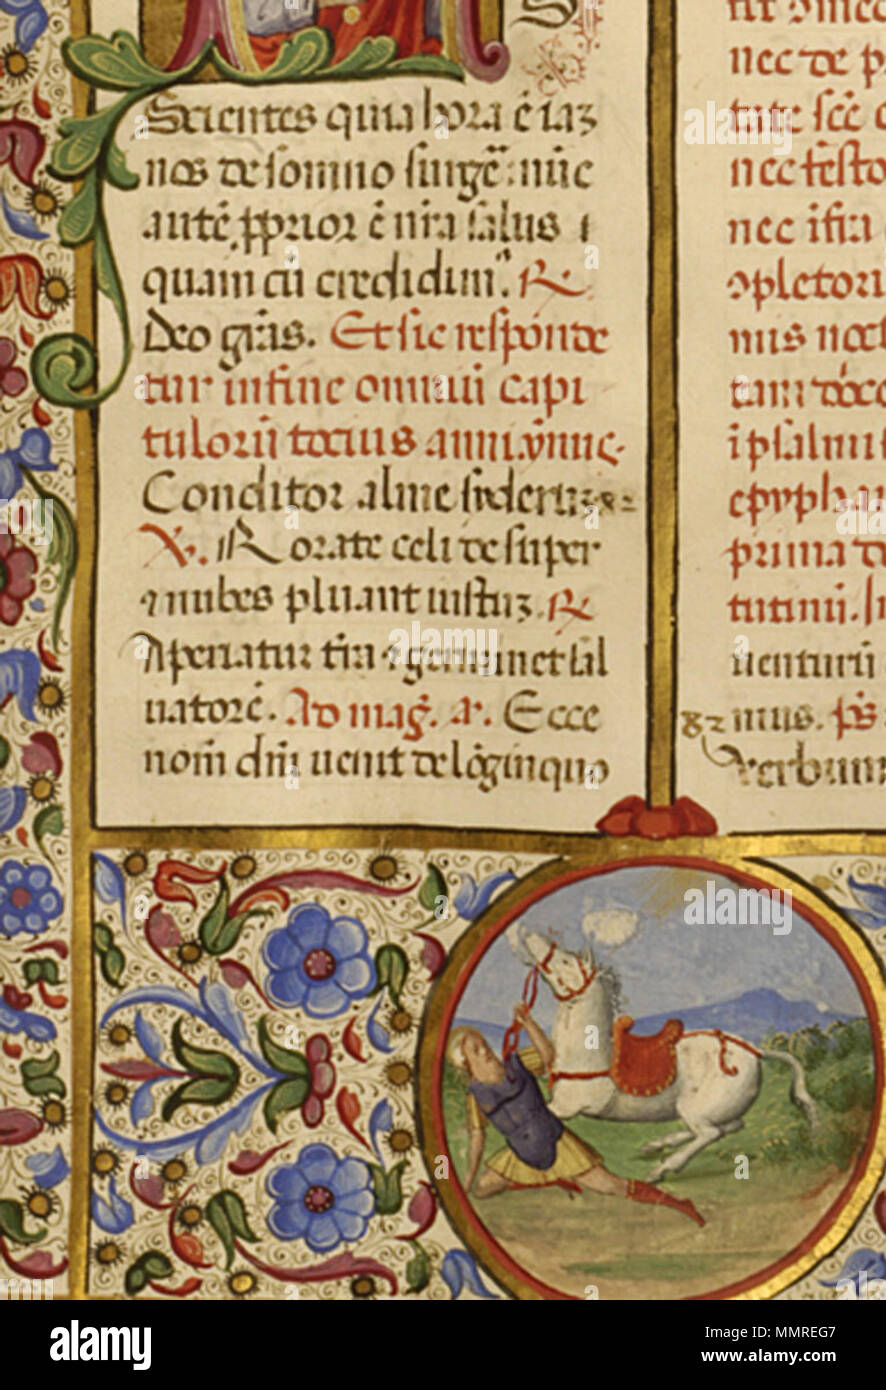 S
Scientes quia hora ē iaʒ
nos de somno surgē: nūc
autē ꝓprior ē nr̄a salus
quam cū credidim'. ℟.
Deo grās. Et sic responde
tur in fine omniū capi
tulorū tocius anni. ymnꝰ.
Conditor alme siderum
℣. Rorate celi desuper
⁊ nubes pluant iustuʒ. ℟.
Aperiatur tr̄a ⁊ germinet sal
uatorē. Ad mag̅. a̅. Ecce
nom̄ dn̄i uenit de lōginquo
nec de
tate scē
nec festo
nec ifra
ɔpletori
mis noct
ipsalmis
epyphan
prima
tutinū.
uenturū
mus. ps̄
verbum
a alamy stock photo
MMREG7
www.alamy.com